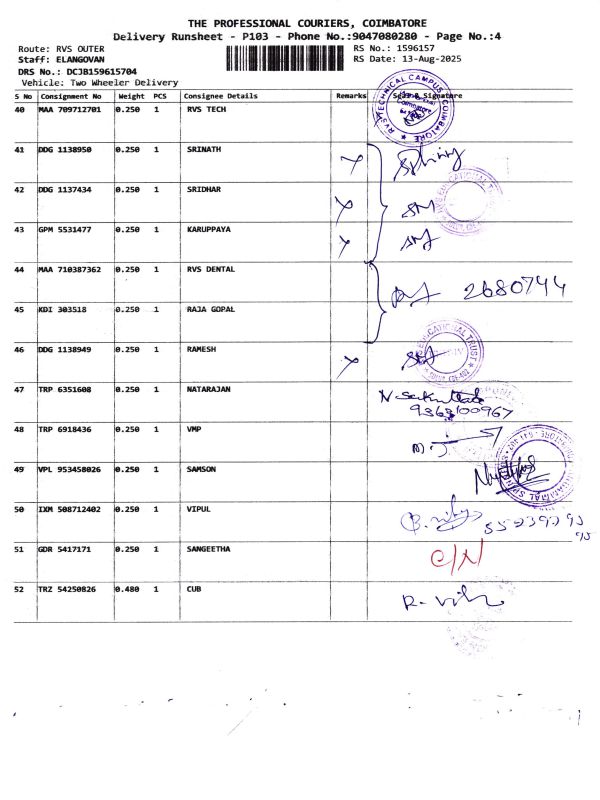 THE PROFESSIONAL COURIERS, COIMBATORE
Delivery Runsheet - P103 - Phone No.:9047080280 - Page No.:4
Route: RVS OUTER
RS No.: 1596157
Staff: ELANGOVAN
RS Date: 13-Aug-2025
DRS No.: DCJB159615704
Vehicle: Two Wheeler Delivery
S No Consignment No Weight PCS Consignee Details Remarks Seal & Signature
40 MAA 709712701 0.250 1 RVS TECH
RVS TECHNICAL CAMPUS COIMBATORE
41 DDG 1138950 0.250 1 SRINATH
42 DDG 1137434 0.250 1 SRIDHAR
43 GPM 5531477 0.250 1 KARUPPAYA
44 MAA 710387362 0.250 1 RVS DENTAL
2680744
45 KDI 303518 0.250 1 RAJA GOPAL
46 DDG 1138949 0.250 1 RAMESH
EDUCATIONAL TRUST
47 TRP 6351608 0.250 1 NATARAJAN
9363100967
48 TRP 6918436 0.250 1 VMP
49 VPL 953458026 0.250 1 SAMSON
50 IXM 508712402 0.250 1 VIPUL
51 GDR 5417171 0.250 1 SANGEETHA C/N
52 TRZ 54250826 0.480 1 CUB